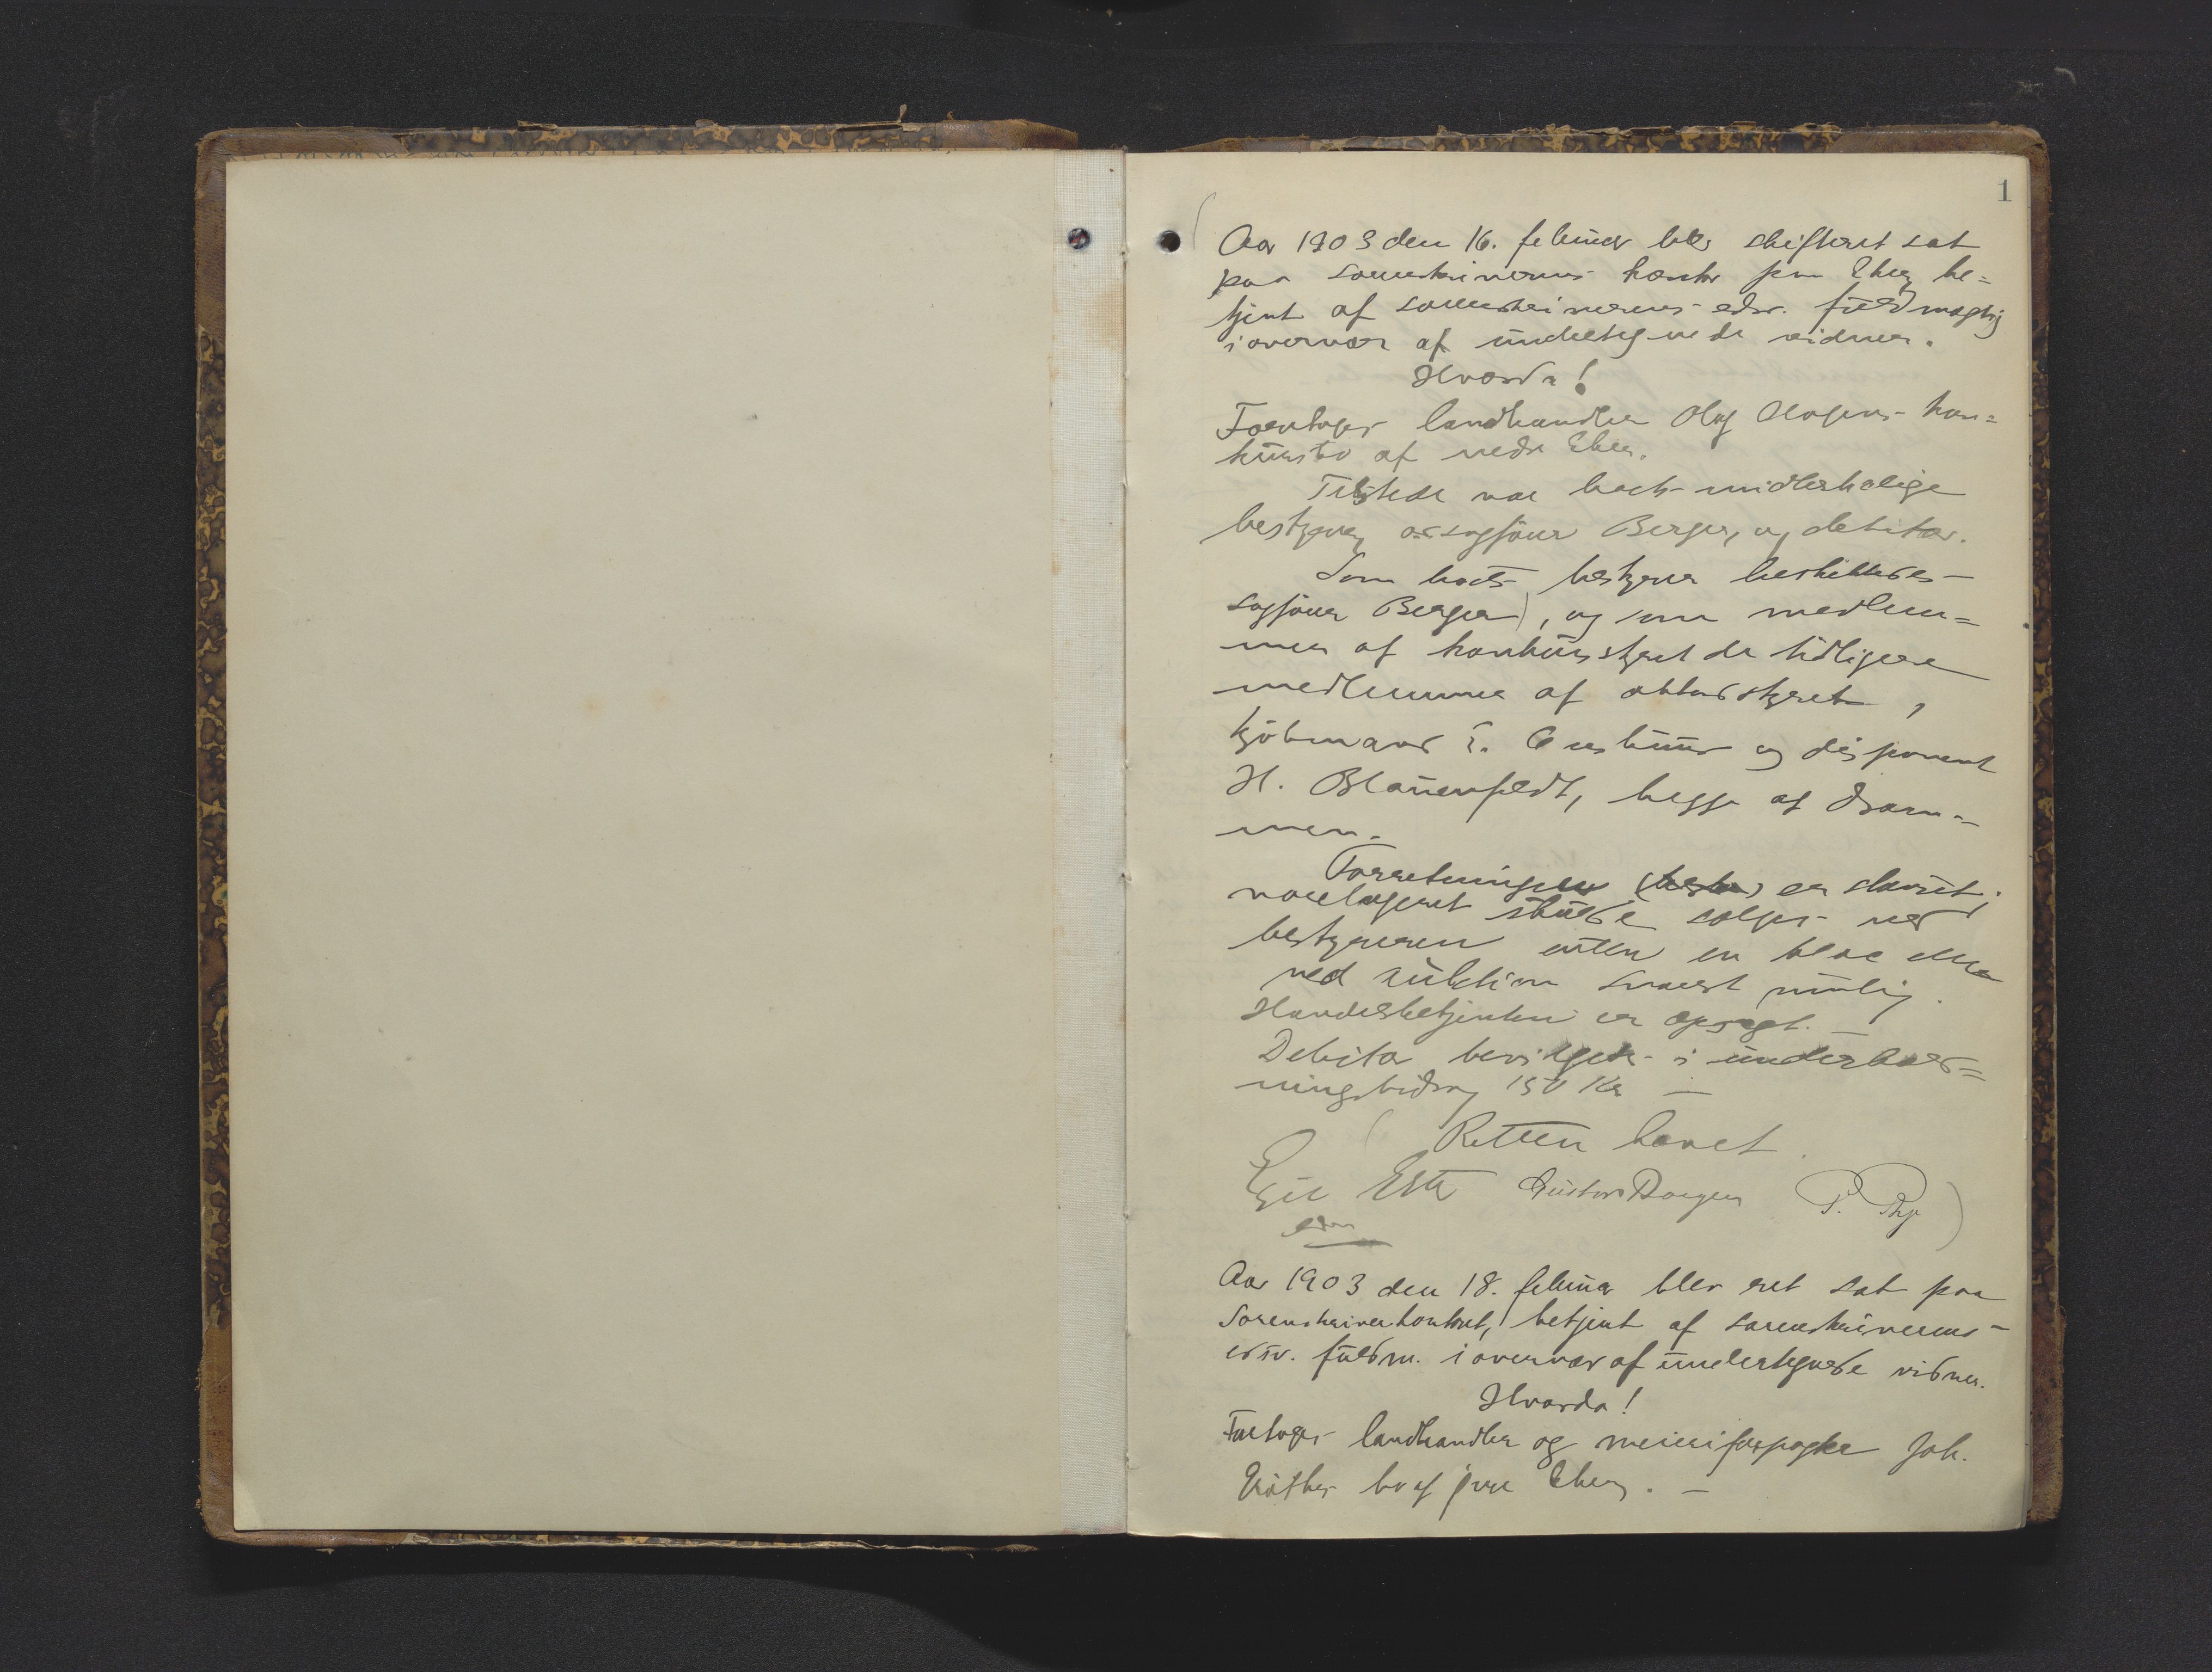 1
Aar 1903 den 16. februar blev skifteret sat
paa sorenskriverens kontor paa Eker, be=
tjent af sorenskriverens edsv. fuldmægtig
i overvær af undertegnede vidner.
Hvorda!
Foretoges landhandler Olaf Olsens kon=
kursbo af nedre Eker.
Tilstede var boets midlertidige
bestyrer, o.r.sagfører Berger, og debitor.
Som boets bestyrer beskikkedes
sagfører Berger, og som medlem=
mer af konkursstyret de tidligere
medlemmer af akkordstyret,
kjøbmand og disponent
H. Blauenfeldt, begge af Dram=
men.
Forretningen er sluttet;
varelageret skulde sælges ved
bestyreren enten en bloc eller
ved auktion snarest mulig.
Handelsbetjenten er opsagt.
Debitor bevilges i underhold=
ningsbidrag 150 Kr
Retten hævet.
Egil Gustav P.
edsv
Aar 1903 den 18. februar blev ret sat paa
Sorenskriverkontoret, betjent af sorenskriverens
edsv. fuldm. i overvær af undertegnede vidner.
Hvorda!
Foretoges landhandler og meieriforpagter Joh.
bo af øvre Eker.